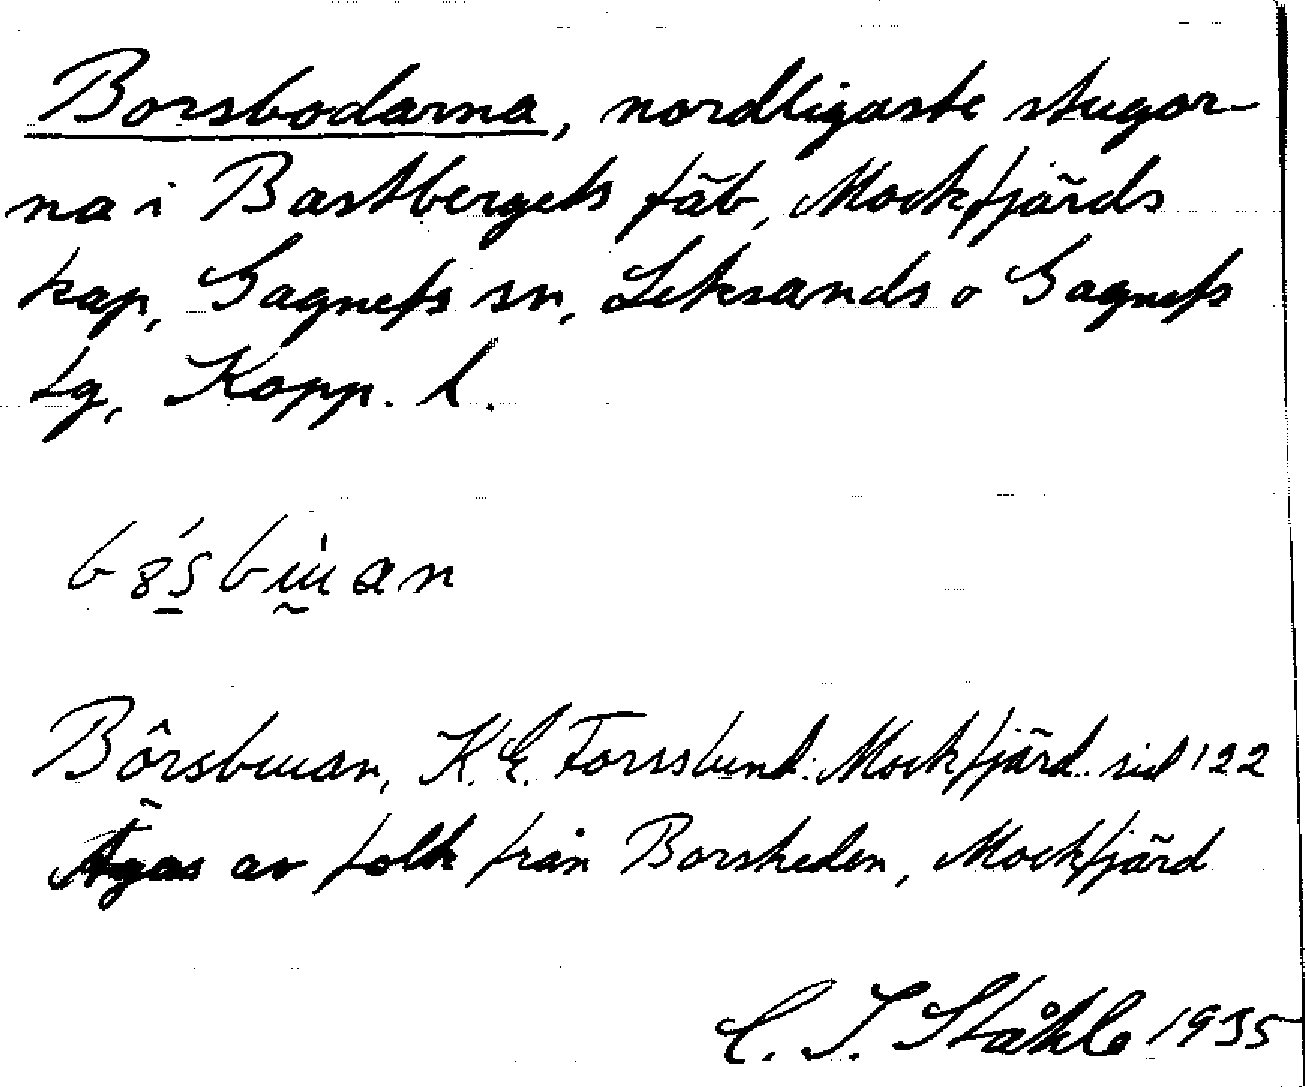 Borsbodarna, nordligaste stugor-
na i Bastbergets fäb, Mockfjärds
kap, Gagnefs sn, Leksands o Gagnefs
tg, Kopp. l.
Bôrsbuan, K. E. Forsslund: Mockfjärd. sid 122
Ägas av folk från Borsheden, Mockfjärd
C. I. Ståhle 1935